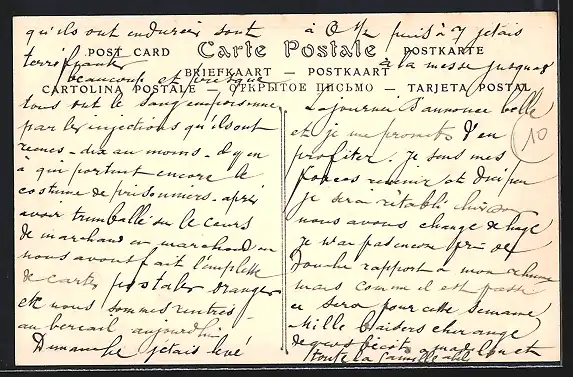 qu'ils ont endurés sont
terrifiantes
beaucoup et presque
tous ont le sang empoisonné
par les injections qu'ils ont
reçues - dix au moins - il y en
à qui portent encore le
costume de prisonniers - après
avoir trimballé sur le cours
de marchand en marchand
nous avons fait l'emplette
de cartes postales oranges
etc nous sommes rentrés
au bercail aujourd'hui
Dimanche j'étais levé
POST CARD Carte Postale POSTKARTE
BRIEFKAART — POSTKAART
CARTOLINA POSTALE — ОТКРЫТОЕ ПИСЬМО — TARJETA POSTAL
à 6 h puis à 7 j'étais
à la messe jusqu'à 8
La journée s'annonce belle
et je me promets d'en
profiter. Je sens mes
forces revenir et d'ici peu
je serai rétabli
nous avons changé de linge
je n'ai pas encore pris de
douche rapport à mon rhume
mais comme il est passé
ce sera pour cette semaine
Mille baisers cher ange
de gros bécots
toute la famille
10